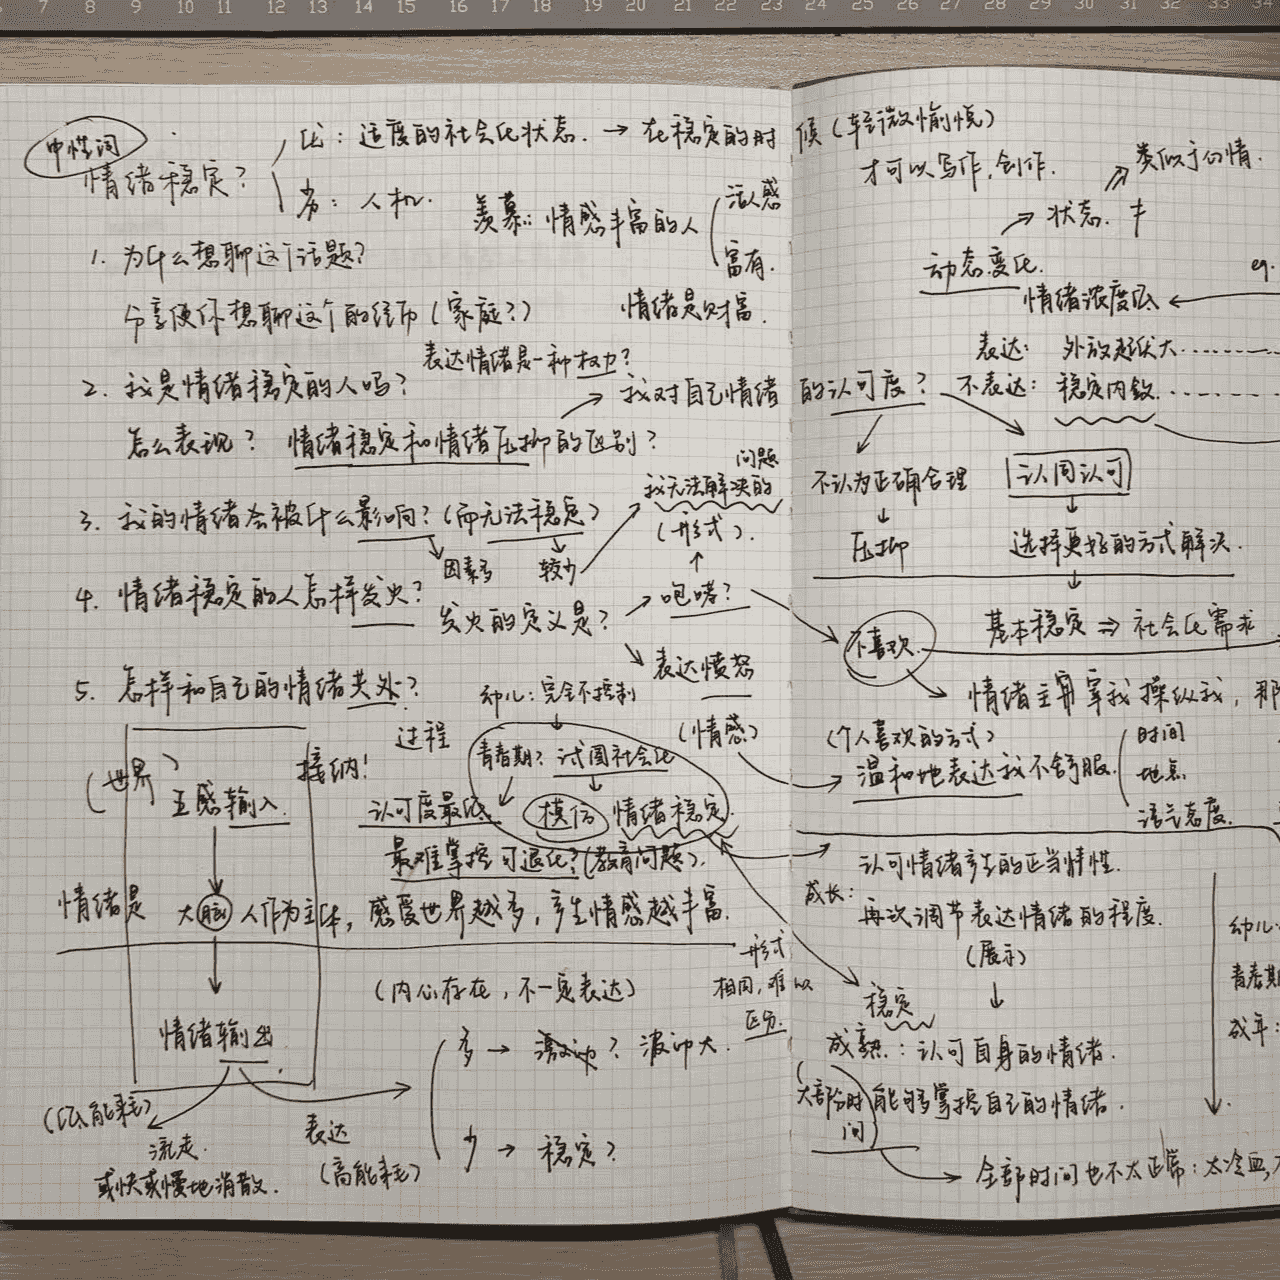 7 8 9 10 11 12 13 14 15 16 17 18 19 20 21 22 23 24 25 26 27 28 29 30 31 32 33 34
中性词
情绪稳定?
比: 适度的社会化状态. → 在稳定的时候(轻微愉悦)
才可以写作,创作.
贬: 人机.
羡慕: 情感丰富的人
活人感
富有.
情绪是财富.
1. 为什么想聊这个话题?
分享使你想聊这个的经历(家庭?)
表达情绪是一种权力?
2. 我是情绪稳定的人吗?
怎么表现? 情绪稳定和情绪压抑的区别?
→ 我对自己情绪的认可度?
3. 我的情绪会被什么影响?(而无法稳定)
因素多
较少
问题
我无法解决的
(形式).
4. 情绪稳定的人怎样发火?
发火的定义是?
→ 咆哮?
表达愤怒
(情感)
5. 怎样和自己的情绪共处?
(世界)
五感输入.
接纳!
↓
情绪是
大脑 人作为主体, 感受世界越多, 产生情感越丰富.
↓
情绪输出.
(低能耗)
流走.
或快或慢地消散.
表达
(高能耗)
过程
幼儿: 完全不控制
青春期? 试图社会化
认可度最低
模仿 情绪稳定
最难掌控 可退化?(教育问题).
(内心存在, 不一定表达)
形式
相同, 难以
区分.
多 → 激动? 波动大.
少 → 稳定?
类似于心情.
→ 状态.
动态变化.
情绪浓度低
eg.
表达: 外放起伏大......
不表达: 稳定内敛......
不认为正确合理
↓
压抑
认同认可
↓
选择更好的方式解决.
↓
基本稳定 ⇒ 社会化需求
不喜欢.
情绪主宰我操纵我, 那
(个人喜欢的方式)
温和地表达我不舒服.
时间
地点
语气态度.
认可情绪产生的正当情性.
成长:
再次调节表达情绪的程度.
(展示)
↓
稳定
成熟: 认可自身的情绪.
(大部分时间) 能够掌控自己的情绪.
→ 全部时间也不太正常: 太冷血,
幼儿:
青春期
成年: